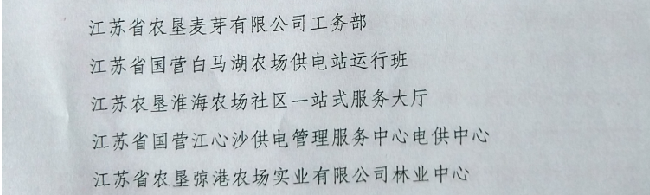 江苏省农垦麦芽有限公司工务部
江苏省国营白马湖农场供电站运行班
江苏农垦淮海农场社区一站式服务大厅
江苏省国营江心沙供电管理服务中心电供中心
江苏省农垦弶港农场实业有限公司林业中心